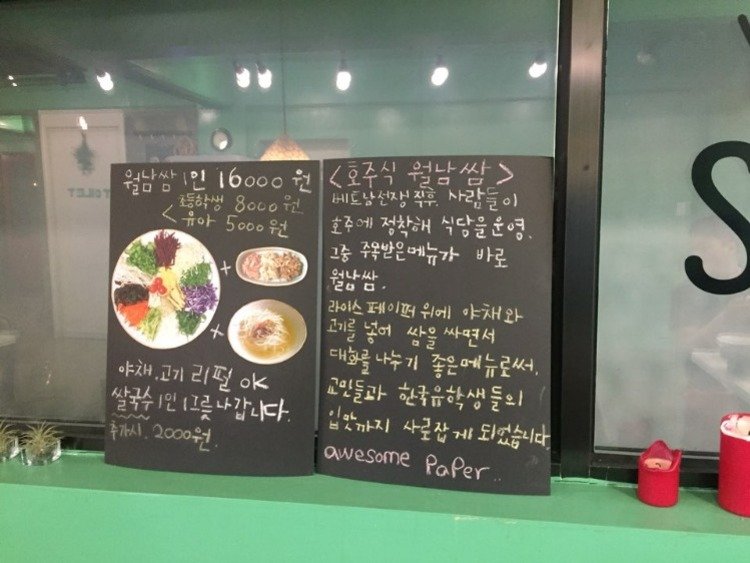 월남쌈 1인 16000원
초등학생 8000원
< 유아 5000원
+
+
야채, 고기 리필 OK
쌀국수 1인 1그릇 나갑니다.
추가시. 2000원.
<호주식 월남쌈>
베트남전쟁 직후. 사람들이
호주에 정착해 식당을 운영.
그중 주목받은메뉴가 바로
월남쌈.
라이스 페이퍼 위에 야채와
고기를 넣어 쌈을 싸면서
대화를 나누기 좋은메뉴로써.
교민들과 한국유학생들의
입맛까지 사로잡게 되었습니다
awesome PaPer..
TOILET
S